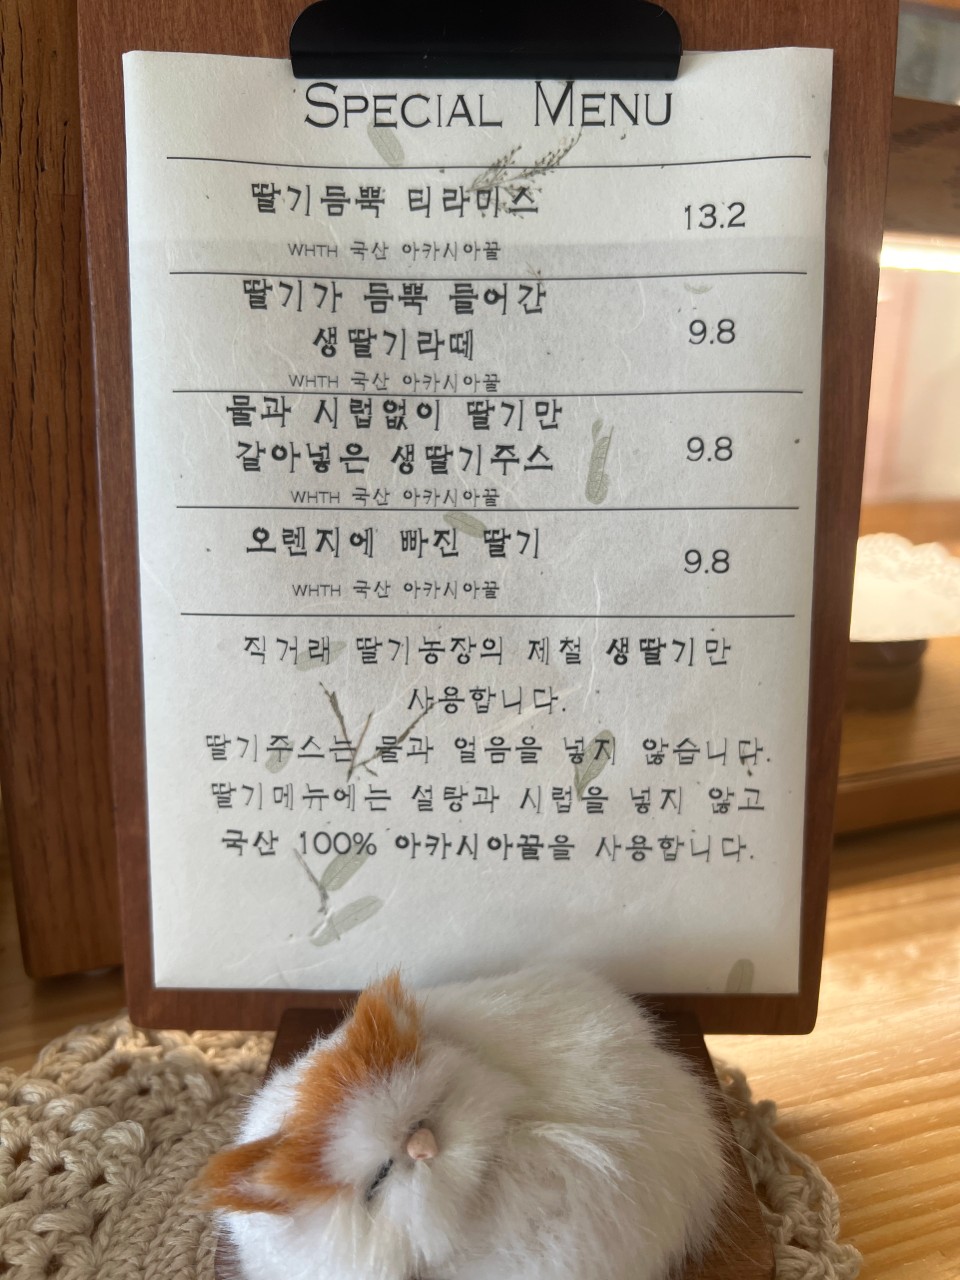 SPECIAL MENU
딸기듬뿍 티라미스
13.2
WHTH 국산 아카시아꿀
딸기가 듬뿍 들어간
생딸기라떼
9.8
WHTH 국산 아카시아꿀
물과 시럽없이 딸기만
갈아넣은 생딸기주스
9.8
WHTH 국산 아카시아꿀
오렌지에 빠진 딸기
9.8
WHTH 국산 아카시아꿀
직거래 딸기농장의 제철 생딸기만
사용합니다.
딸기주스는 물과 얼음을 넣지 않습니다.
딸기메뉴에는 설탕과 시럽을 넣지 않고
국산 100% 아카시아꿀을 사용합니다.